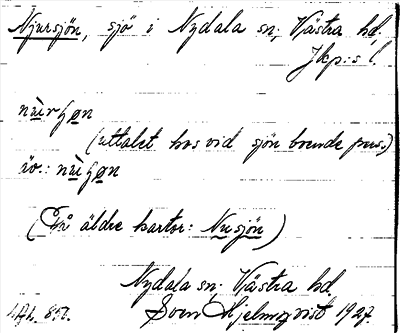 Njursjön, sjö i Nydala sn, Västra hd,
Jkp:s l.
(uttalet hos vid sjön boende pers.)
äv.:
(På äldre kartor: Nusjön)
Nydala sn. Västra hd.
Sven Hjelmqvist 1927.